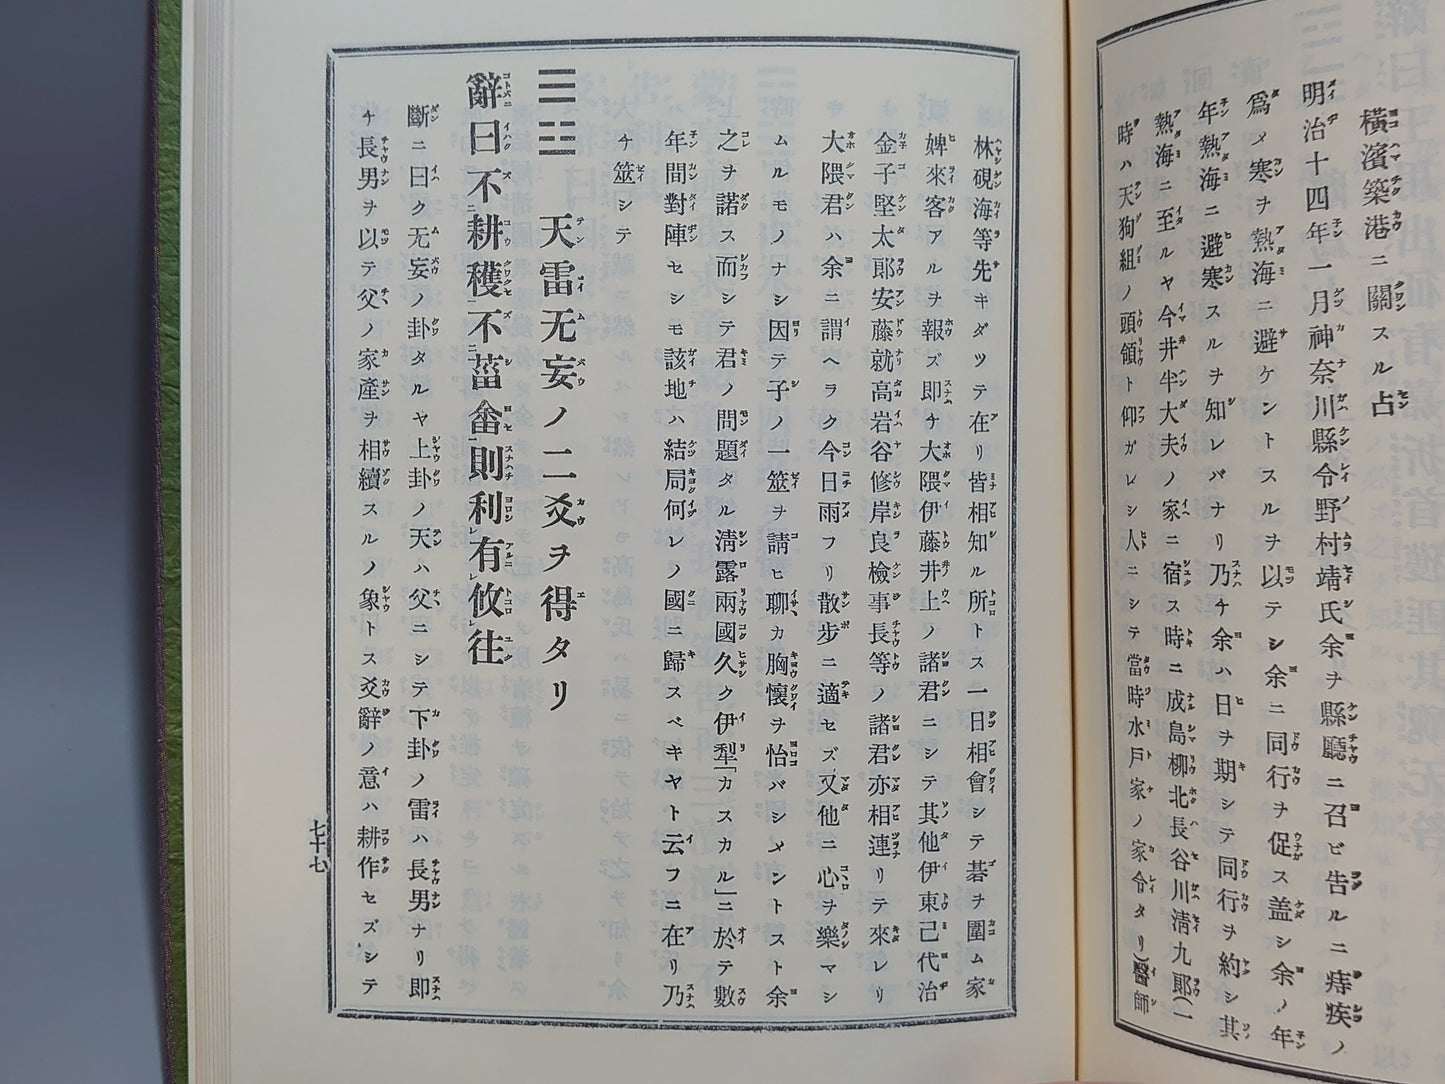 横濱築港ニ關スル占
明治十四年一月神奈川縣令野村靖氏余ヲ縣廳ニ召ビ告ルニ痔疾ノ
爲メ寒ヲ熱海ニ避ケントスルヲ以テシ余ニ同行ヲ促ス盖シ余ノ年
年熱海ニ避寒スルヲ知レバナリ乃チ余ハ日ヲ期シテ同行ヲ約シ其
熱海ニ至ルヤ今井半大夫ノ家ニ宿ス時ニ成島柳北長谷川清九郎(一
時ハ天狗組ノ頭領ト仰ガレシ人ニシテ當時水戸家ノ家令タリ)醫師
林硯海等先キダツテ在リ皆相知ル所トス一日相會シテ碁ヲ圍ム家
婢來客アルヲ報ズ即チ大隈伊藤井上ノ諸君ニシテ其他伊東己代治
金子堅太郎安藤就高岩谷修岸良檢事長等ノ諸君亦相連リテ來レリ
大隈君ハ余ニ謂ヘラク今日雨フリ散歩ニ適セズ又他ニ心ヲ樂マシ
ムルモノナシ因テ子ノ一筮ヲ請ヒ聊カ胸懷ヲ怡バシメントスト余
之ヲ諾ス而シテ君ノ問題タル淸露兩國久ク伊犁「カスカル」ニ於テ數
年間對陣セシモ該地ハ結局何レノ國ニ歸スベキヤト云フニ在リ乃
チ筮シテ
天雷无妄ノ二爻ヲ得タリ
辭曰不耕穫不菑畬則利有攸往
斷ニ曰ク无妄ノ卦タルヤ上卦ノ天ハ父ニシテ下卦ノ雷ハ長男ナリ即
チ長男ヲ以テ父ノ家產ヲ相續スルノ象トス爻辭ノ意ハ耕作セズシテ
七十七